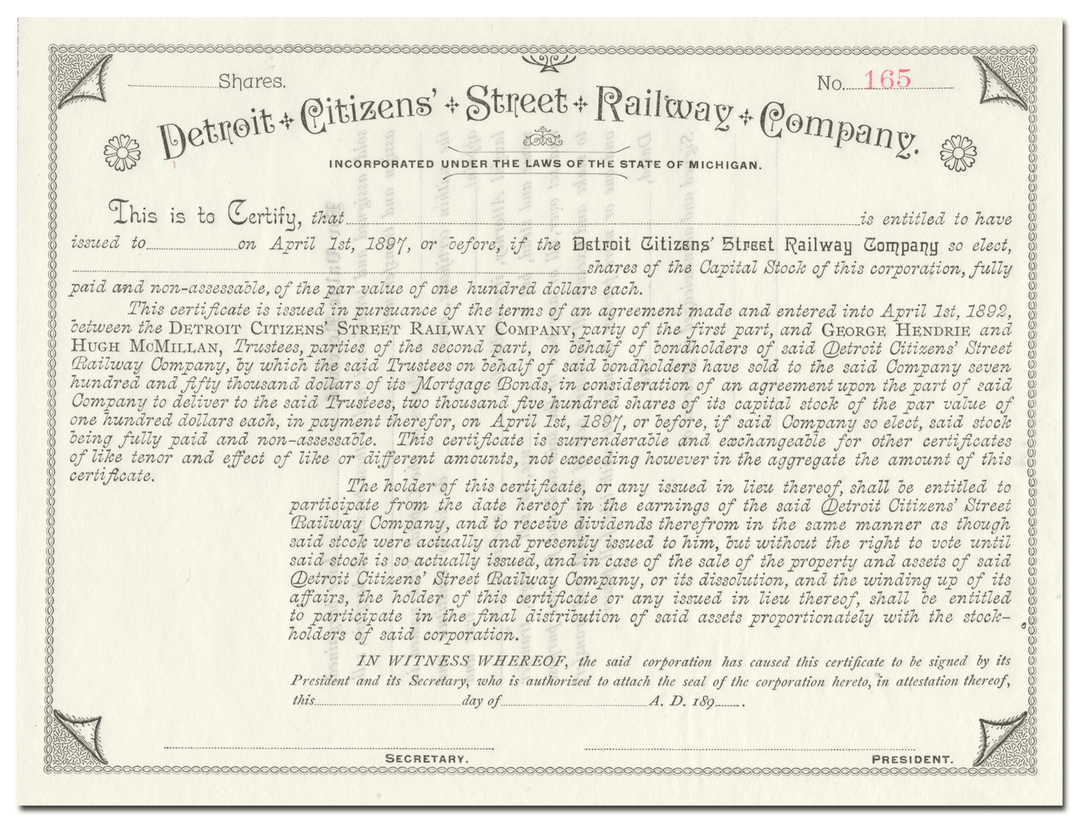 Shares.
No. 165
Detroit Citizens' Street Railway Company.
INCORPORATED UNDER THE LAWS OF THE STATE OF MICHIGAN.
This is to Certify, that is entitled to have
issued to on April 1st, 1897, or before, if the Detroit Citizens' Street Railway Company so elect,
shares of the Capital Stock of this corporation, fully
paid and non-assessable, of the par value of one hundred dollars each.
This certificate is issued in pursuance of the terms of an agreement made and entered into April 1st, 1892,
between the DETROIT CITIZENS' STREET RAILWAY COMPANY, party of the first part, and GEORGE HENDRIE and
HUGH McMILLAN, Trustees, parties of the second part, on behalf of bondholders of said Detroit Citizens' Street
Railway Company, by which the said Trustees on behalf of said bondholders have sold to the said Company seven
hundred and fifty thousand dollars of its Mortgage Bonds, in consideration of an agreement upon the part of said
Company to deliver to the said Trustees, two thousand five hundred shares of its capital stock of the par value of
one hundred dollars each, in payment therefor, on April 1st, 1897, or before, if said Company so elect, said stock
being fully paid and non-assessable. This certificate is surrenderable and exchangeable for other certificates
of like tenor and effect of like or different amounts, not exceeding however in the aggregate the amount of this
certificate.
The holder of this certificate, or any issued in lieu thereof, shall be entitled to
participate from the date hereof in the earnings of the said Detroit Citizens' Street
Railway Company, and to receive dividends therefrom in the same manner as though
said stock were actually and presently issued to him, but without the right to vote until
said stock is so actually issued, and in case of the sale of the property and assets of said
Detroit Citizens' Street Railway Company, or its dissolution, and the winding up of its
affairs, the holder of this certificate or any issued in lieu thereof, shall be entitled
to participate in the final distribution of said assets proportionately with the stock-
holders of said corporation.
IN WITNESS WHEREOF, the said corporation has caused this certificate to be signed by its
President and its Secretary, who is authorized to attach the seal of the corporation hereto, in attestation thereof,
this day of A. D. 189
SECRETARY.
PRESIDENT.